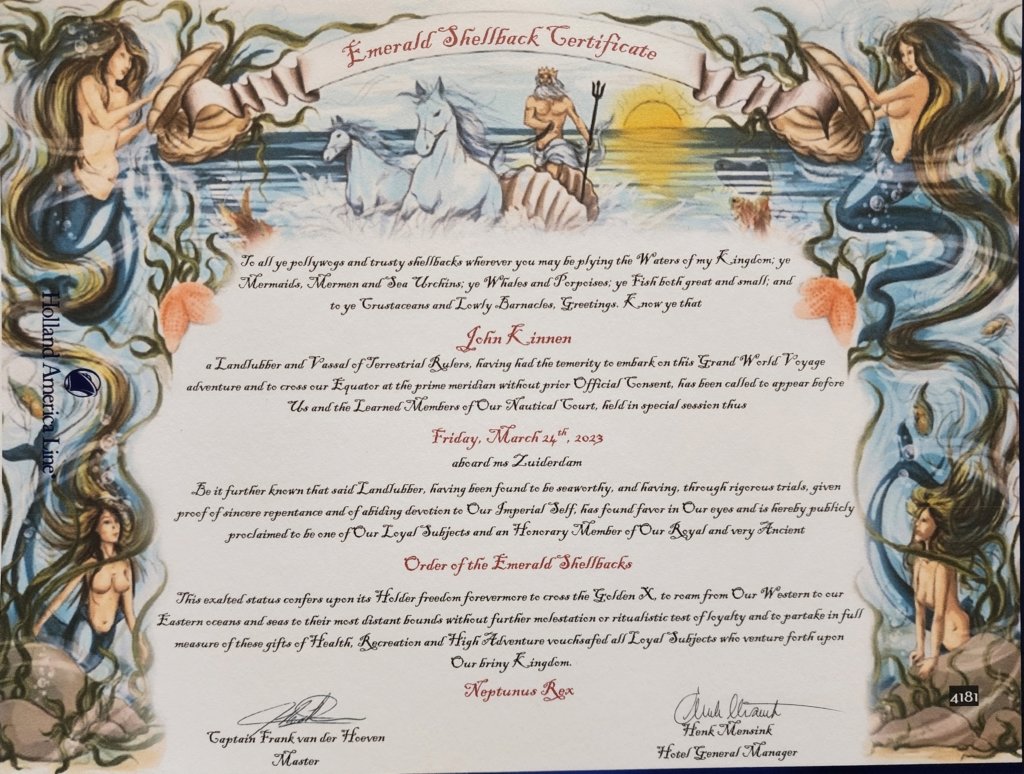 Emerald Shellback Certificate
To all ye pollywogs and trusty shellbacks wherever you may be plying the Waters of my Kingdom; ye
Mermaids, Mermen and Sea Urchins; ye Whales and Porpoises; ye Fish both great and small; and
to ye Crustaceans and Lowly Barnacles, Greetings. Know ye that
John Kinnen
a Landlubber and Vassal of Terrestrial Rulers, having had the temerity to embark on this Grand World Voyage
adventure and to cross our Equator at the prime meridian without prior Official Consent, has been called to appear before
Us and the Learned Members of Our Nautical Court, held in special session thus
Friday, March 24th, 2023
aboard ms Zuiderdam
Be it further known that said Landlubber, having been found to be seaworthy, and having, through rigorous trials, given
proof of sincere repentance and of abiding devotion to Our Imperial Self, has found favor in Our eyes and is hereby publicly
proclaimed to be one of Our Loyal Subjects and an Honorary Member of Our Royal and very Ancient
Order of the Emerald Shellbacks
This exalted status confers upon its Holder freedom forevermore to cross the Golden X, to roam from Our Western to our
Eastern oceans and seas to their most distant bounds without further molestation or ritualistic test of loyalty and to partake in full
measure of these gifts of Health, Recreation and High Adventure vouchsafed all Loyal Subjects who venture forth upon
Our briny Kingdom.
Neptunus Rex
Captain Frank van der Hoeven
Master
Henk Mensink
Hotel General Manager
Holland America Line
4181